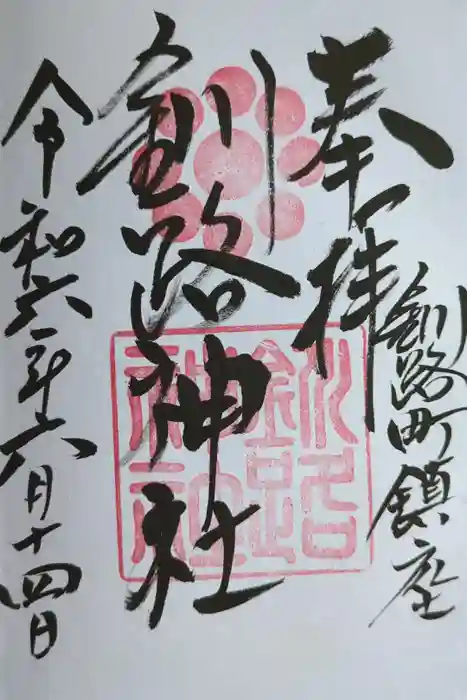 奉拝
釧路町鎮座
釧路神社
令和六年六月十四日